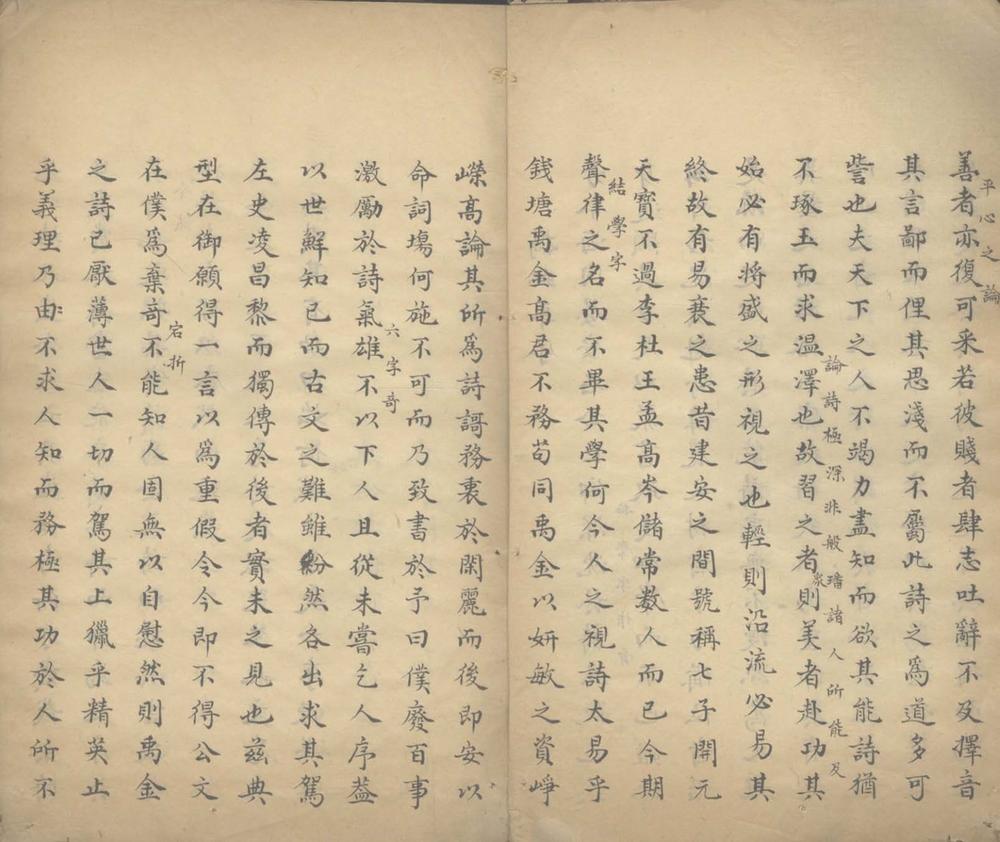 善者亦復可采若彼賤者肆志吐辭不及擇音
平心之論
其言鄙而俚其思淺而不屬此詩之爲道多可
訾也夫天下之人不竭力盡知而欲其能詩猶
論詩極深非般璠諸人所能及
不琢玉而求温澤也故習之者眾則美者赴功其
始必有將盛之形視之也輕則沿流必易其
終故有易衰之患昔建安之間號稱七子開元
天寶不過李杜王孟高岑儲常数人而已今期
結學字
聲律之名而不畢其學何今人之視詩太易乎
錢塘禹金髙君不務苟同禹金以妍敏之資崢
嶸高論其所爲詩謌務裏於閑麗而後即安以
命詞塲何施不可而乃致書於予曰僕廢百事
六字奇
激勵於詩氣雄不以下人且從未嘗乞人序葢
以世鮮知已而古文之難雖紛然各出求其駕
左史凌昌黎而獨傳於後者實未之見也兹典
型在御願得一言以爲重假令今即不得公文
宕折
在僕爲棄竒不能知人固無以自慰然則禹金
之詩已厭薄世人一切而駕其上獵乎精英止
乎義理乃由不求人知而務極其功於人所不